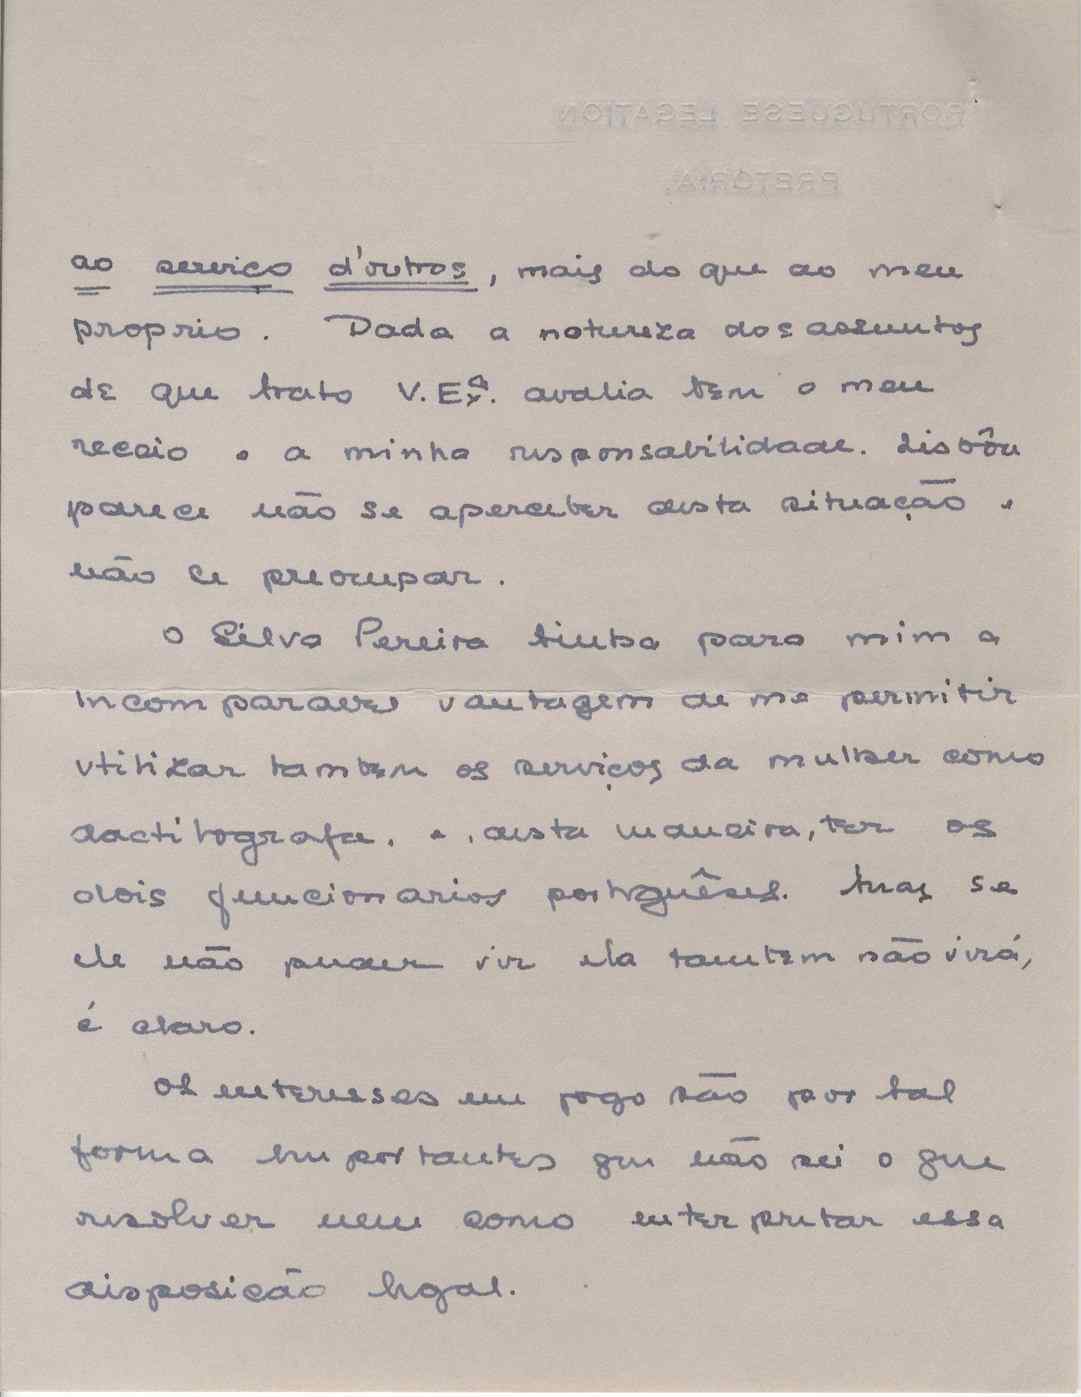 PORTUGUESE LEGATION
PRETORIA.
ao serviço d'outros, mais do que ao meu
proprio. Dada a natureza dos assuntos
de que trato V. Exª. avalia bem o meu
receio e a minha responsabilidade. Lisbôa
parece não se aperceber desta situação e
não se preocupar.
O Silva Pereira tinha para mim a
incomparavel vantagem de me permitir
utilizar tambem os serviços da mulher como
dactilografa, e, desta maneira, ter os
dois funcionarios portuguêses. Mas se
ele não puder vir ela tambem não virá,
é claro.
Os interesses em jogo são por tal
forma importantes que não sei o que
resolver nem como interpretar essa
disposição legal.